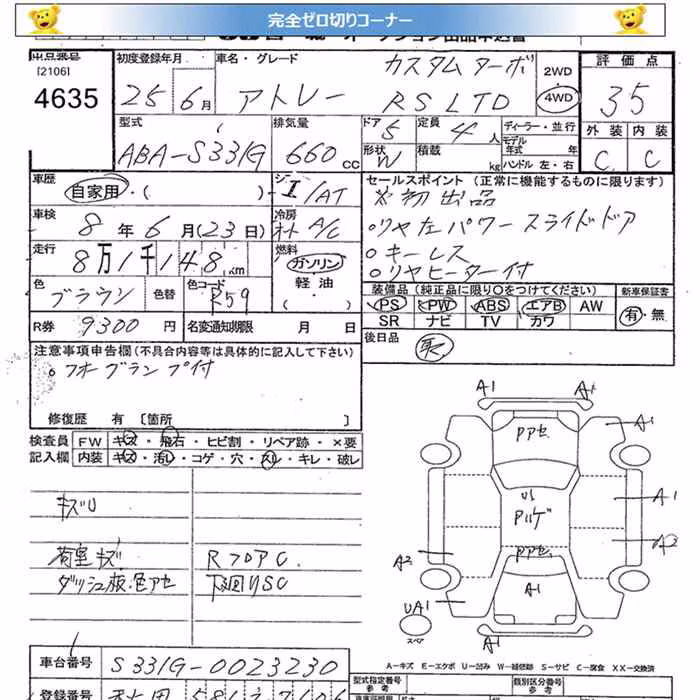 完全ゼロ切りコーナー
出品番号 初度登録年月 車名・グレード カスタムターボ 2WD 評価点
[2106]
4635 25年6月 アトレー RS LTD 4WD 35
型式 排気量 ドア 5 定員 4人 ディーラー・並行 外装 内装
ABA-S331G 660cc 形状 W 積載 kg モデル年式 年 ハンドル 左・右 C C
車歴 自家用・( ) シフト I/AT セールスポイント (正常に機能するものに限ります)
※初出品
車検 8年6月(23日) 冷房 オート A/C ○リヤ左パワースライドドア
走行 8万1千148km 燃料 ガソリン ○キーレス
軽油 ○リヤヒーター付
色 ブラウン 色替 色コード R59 ・( )
装備品 (純正品に限り○をつけてください) 新車保証書
PS PW ABS エアB AW 有・無
SR ナビ TV カワ
R券 9300円 名変通知期限 月 日
後日品 取
注意事項申告欄 (不具合内容等は具体的に記入して下さい)
○フォーグランプ付
修復歴 有 〔箇所 〕
検査員 FW キズ・飛石・ヒビ割・リペア跡・×要
記入欄 内装 キズ・汚レ・コゲ・穴・スレ・キレ・破レ
A1 A1
PアセA1
キズU
U1
Pハゲ
A1
荷室キズ RフロアC
Pアセ
A2 A2
ダッシュ板色アセ 下廻りSC
A1
UA1
スペア
A1
A-キズ E-エクボ U-凹み W-補修跡 S-サビ C-腐食 XX-交換済
車台番号 S331G-0023230
型式指定番号 類別区分番号
参考 参考
登録番号